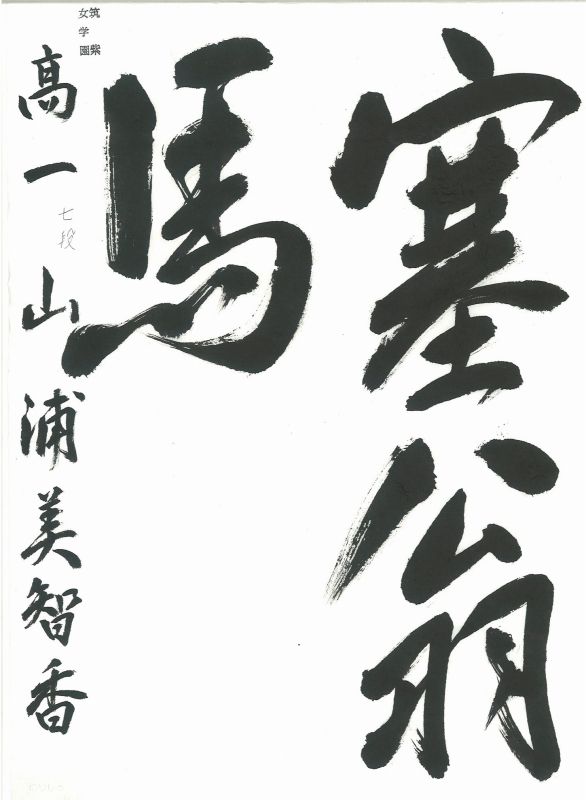 塞翁
馬
筑紫
女学園
高一 山浦美智香
七段